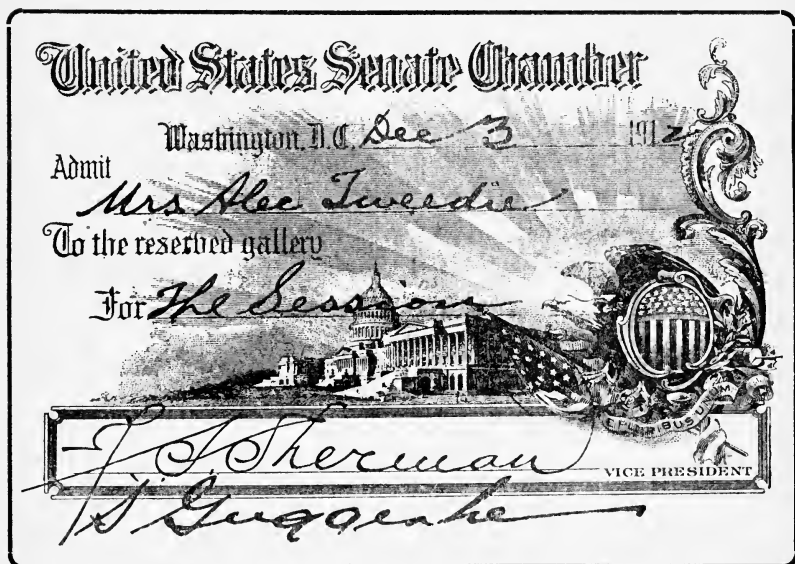 United States Senate Chamber
Washington, D.C. Dec 3 1912
Admit
Mrs Alec Tweedie
To the reserved gallery
For The Session
E PLURIBUS UNUM
J S Sherman
VICE PRESIDENT
S Guggenhe